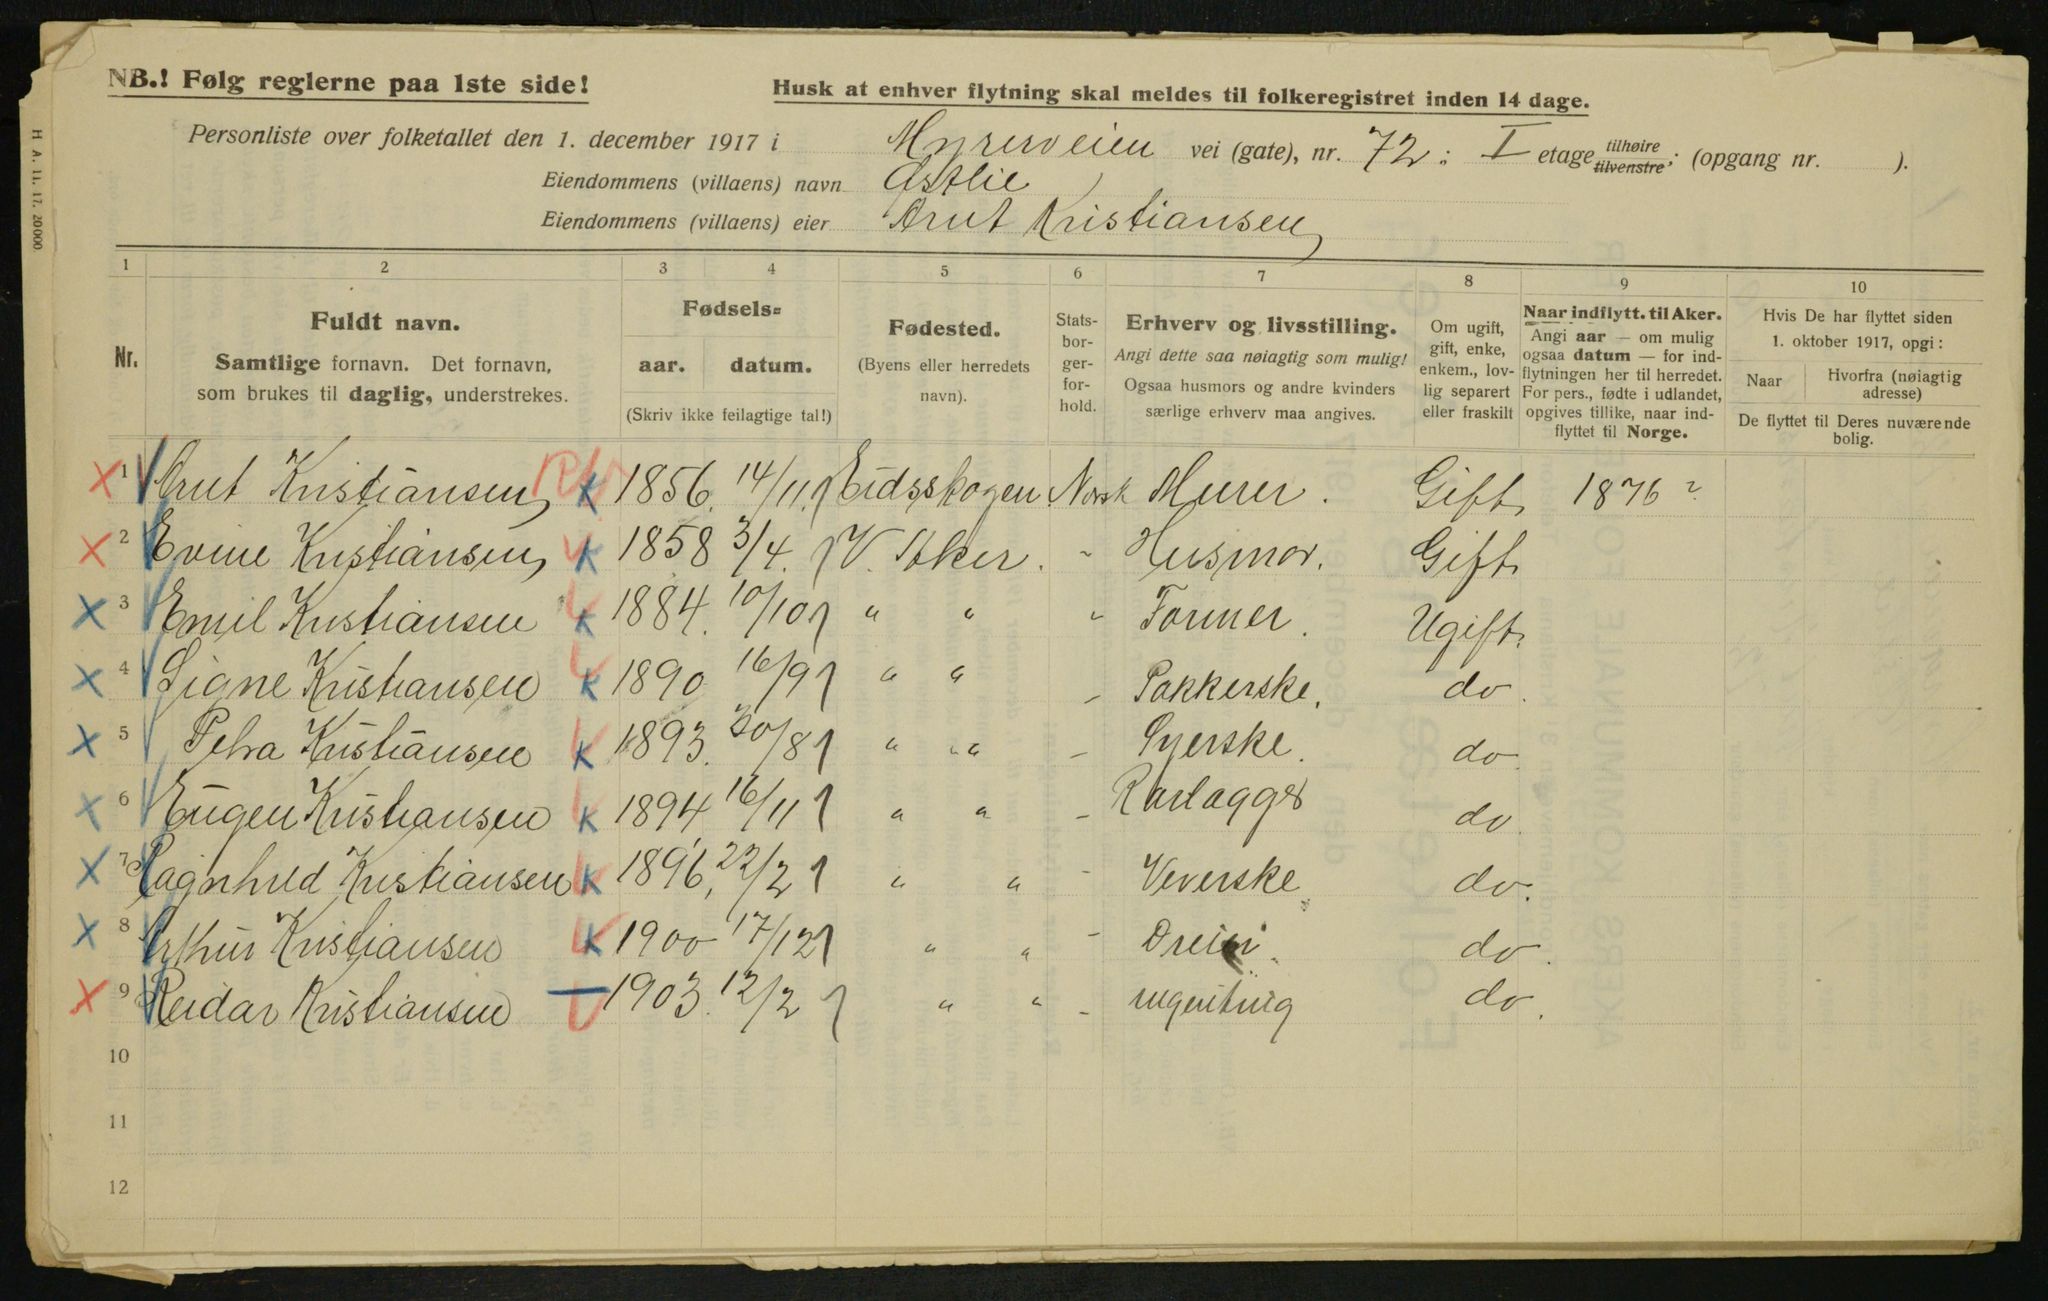 NB.! Følg reglerne paa 1ste side!
Husk at enhver flytning skal meldes til folkeregistret inden 14 dage.
Personliste over folketallet den 1. december 1917 i Myrerveien vei (gate), nr. 72; I etage tilhøire tilvenstre; (opgang nr. ).
Eiendommens (villaens) navn Østlie
Eiendommens (villaens) eier Arnt Kristiansen
H A. 11. 17. 20000
1 2 3 4 5 6 7 8 9 10
Nr.
Fuldt navn.
Samtlige fornavn. Det fornavn,
som brukes til daglig, understrekes.
Fødsels=
aar. datum.
(Skriv ikke feilagtige tal!)
Fødested.
(Byens eller herredets
navn).
Stats-
bor-
ger-
for-
hold.
Erhverv og livsstilling.
Angi dette saa nøiagtig som mulig!
Ogsaa husmors og andre kvinders
særlige erhverv maa angives.
Om ugift,
gift, enke,
enkem., lov-
lig separert
eller fraskilt
Naar indflytt. til Aker.
Angi aar — om mulig
ogsaa datum — for ind-
flytningen her til herredet.
For pers., fødte i udlandet,
opgives tillike, naar ind-
flyttet til Norge.
Hvis De har flyttet siden
1. oktober 1917, opgi:
Naar Hvorfra (nøiagtig
adresse)
De flyttet til Deres nuværende
bolig.
X 1 Arnt Kristiansen K 1856. 14/11. Eidsskogen. Norsk Murer. Gift. 1876?
X 2 Evine Kristiansen K 1858 3/4. V. Aker. " Husmor. Gift.
X 3 Emil Kristiansen K 1884. 10/10 " " " Former. Ugift.
X 4 Signe Kristiansen K 1890 16/9 " " - Pakkerske. do.
X 5 Petra Kristiansen K 1893. 30/8 " " - Syerske. do.
X 6 Eugen Kristiansen K 1894 16/11 " " - Rørlægger do.
X 7 Ragnhild Kristiansen K 1896, 22/2 " " - Veverske do.
X 8 Arthur Kristiansen K 1900 17/12 " " - Dreier. do.
X 9 Reidar Kristiansen 1903. 12/2 " " - ingenting do.
10
11
12